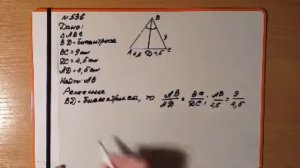 №536
Дано:
△ABC
BD - биссектриса
BC = 9 см
DC = 4,5 см
AD = 7,5 см
Найти: AB
Решение
BD - биссектриса, то AB/AD = BC/DC; AB/7,5 = 9/4,5
B
9
A 7,5 D 4,5 C